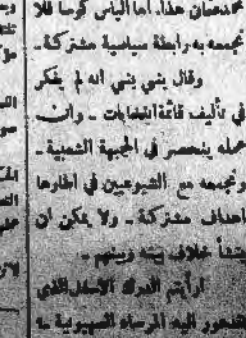 هذا. أما الياس كرسا فلا
تجمعه به رابطة سياسية مشتركة.
وقال يني يني انه لم يفكر
في تأليف قائمة انتخابات - وان
عمله ينحصر في الجبهة الشعبية -
وتجمعه مع الشيوعيين في اطارها
اهداف مشتركة - ولا يمكن ان
ينشأ خلاف بينه وبينهم -
ارأيتم الدرك الاسفل الذي
اليه